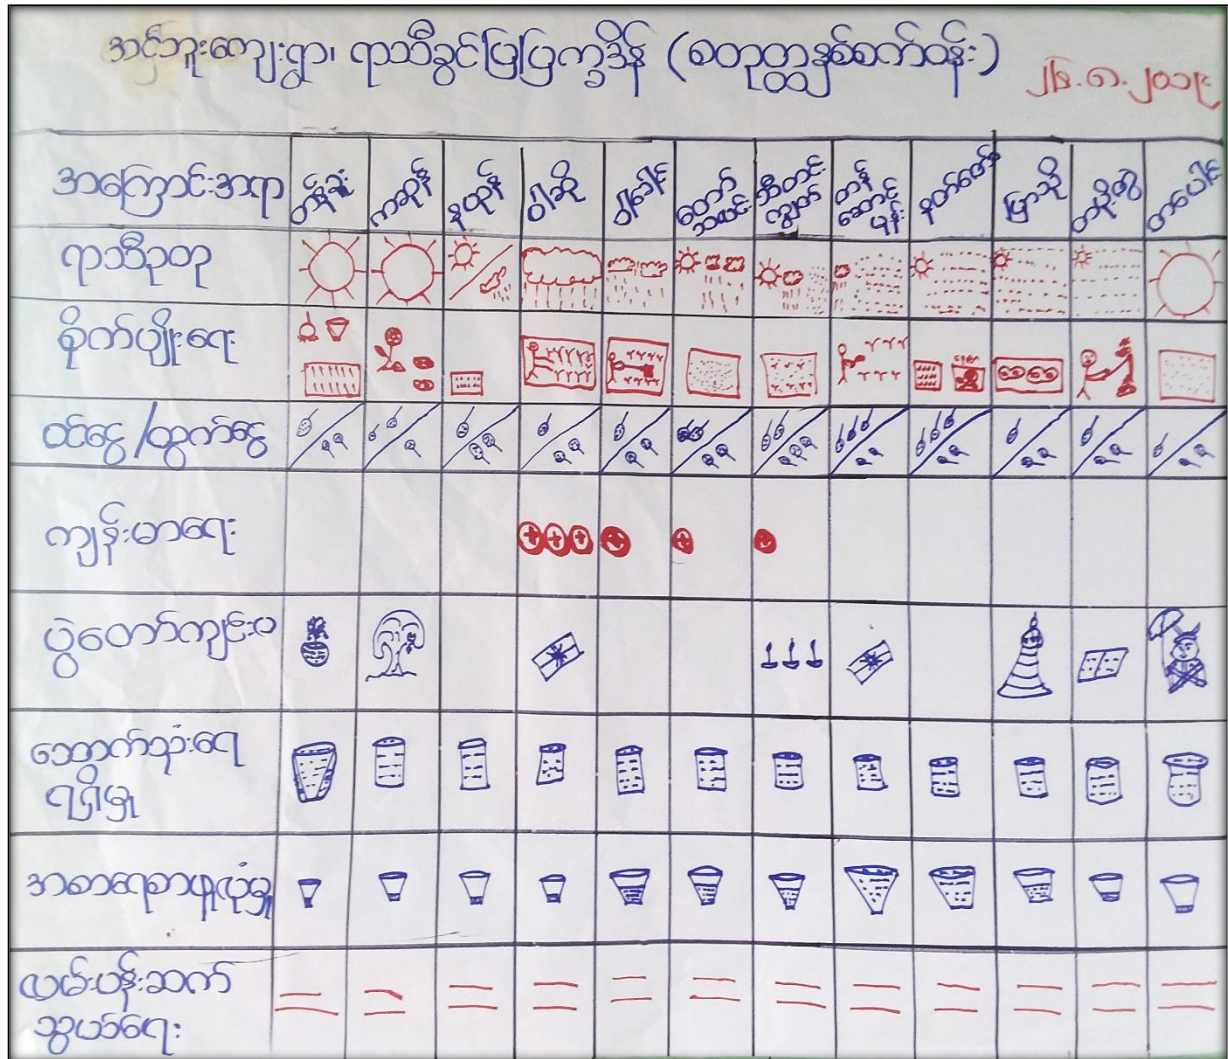 အင်ဘူးကျေးရွာ၊ ရာသီခွင်ပြပြက္ခဒိန် (စတုတ္ထနှစ်စက်ဝန်း)
၂၆.၈.၂၀၁၉
အကြောင်းအရာ တန်ခူး ကဆုန် နယုန် ဝါဆို ဝါခေါင် တော်သလင်း သီတင်းကျွတ် တန်ဆောင်မုန်း နတ်တော် ပြာသို တပို့တွဲ တပေါင်း
ရာသီဥတု
စိုက်ပျိုးရေး
ဝင်ငွေ/ထွက်ငွေ
ကျန်းမာရေး
ပွဲတော်ကျင်းပ
သောက်သုံးရေ
ရရှိမှု
အစားရေစာဖူလုံမှု
လမ်းပန်းဆက်
သွယ်ရေး